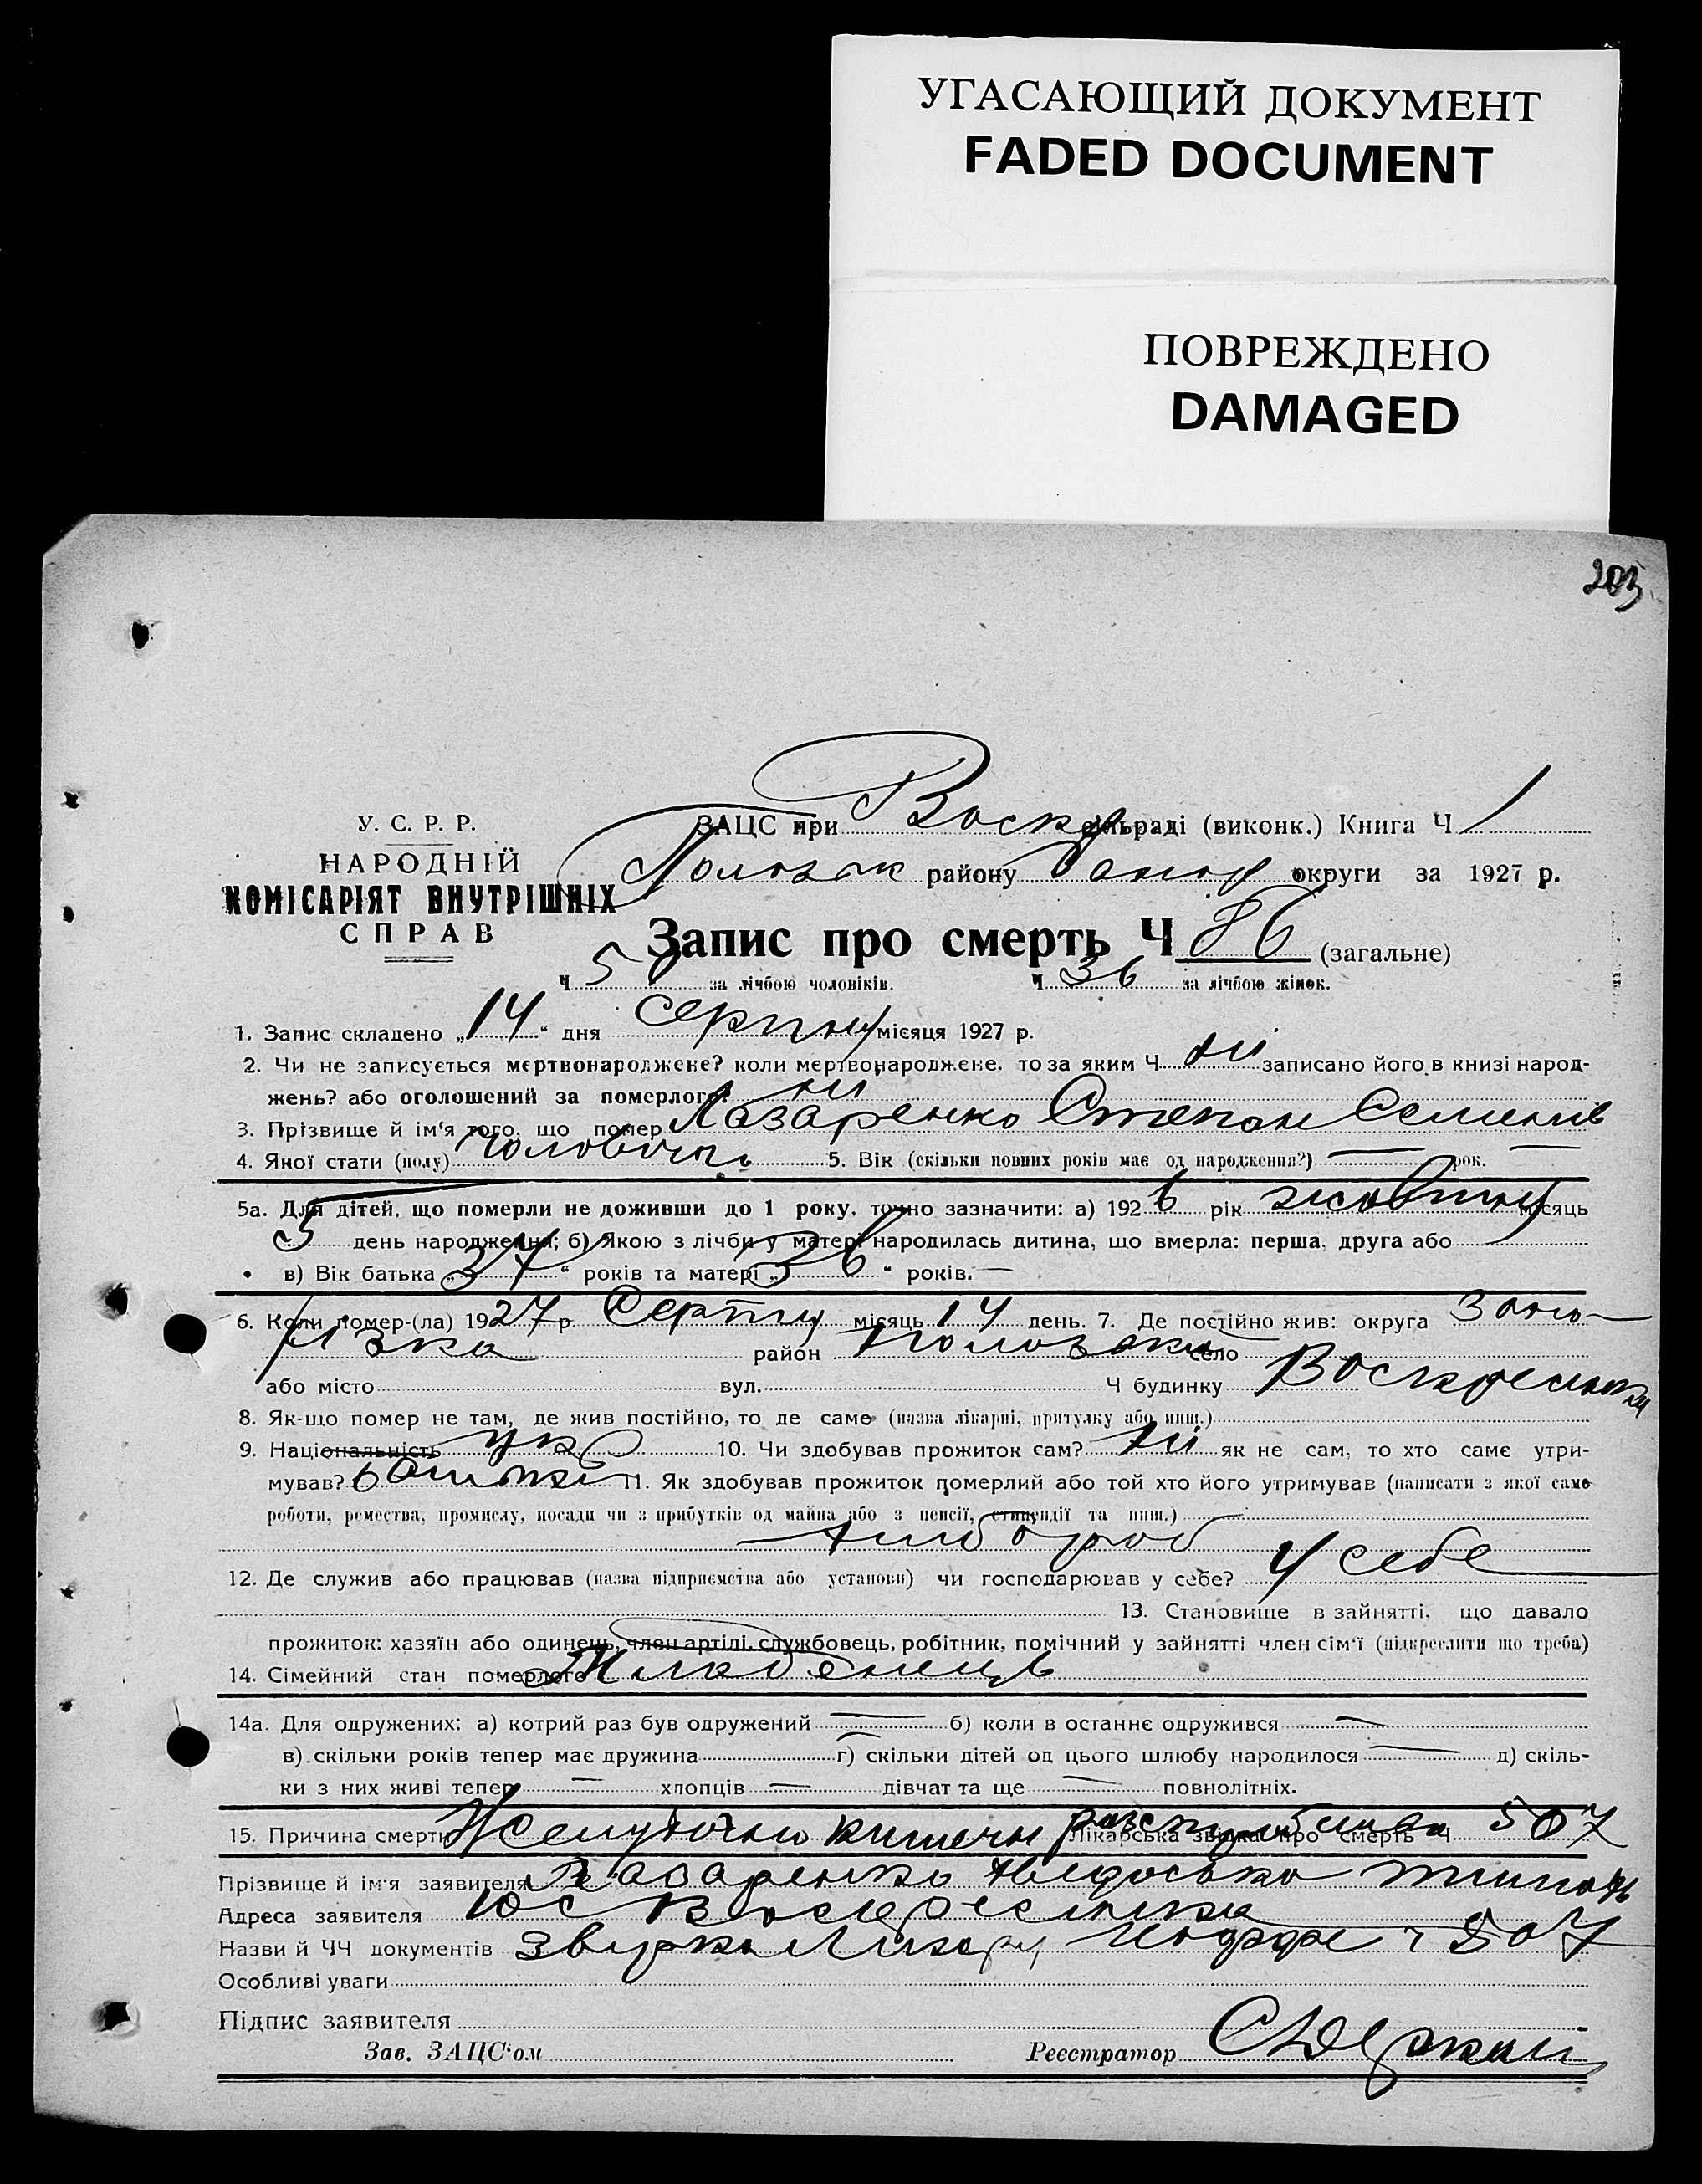 УГАСАЮЩИЙ ДОКУМЕНТ
FADED DOCUMENT
ПОВРЕЖДЕНО
DAMAGED
203
У. С. Р. Р.
НАРОДНІЙ
КОМІСАРІЯТ ВНУТРІШНІХ
СПРАВ
ЗАЦС при Воскр сільраді (виконк.) Книга Ч 1
району округи за 1927 р.
Запис про смерть Ч 86 (загальне)
Ч 50 за лічбою чоловіків. Ч 36 за лічбою жінок.
1. Запис складено „14“ дня Серпну місяця 1927 р.
2. Чи не записується мертвонароджене? коли мертвонароджене, то за яким Ч ні записано його в книзі народ-
жень? або оголошений за померлого? ні
3. Прізвище й ім'я того, що помер Лазаренко Степан Семенів
4. Якої стати (полу) 5. Вік (скільки повних років має од народження?) — рок. —
5а. Для дітей, що померли не доживши до 1 року, точно зазначити: а) 1926 рік жовтну місяць
5 день народження; б) Якою з лічби у матері народилась дитина, що вмерла: перша, друга або
в) Вік батька „37“ років та матері „36“ років. —
6. Коли помер-(ла) 1927 р. Серпну місяць 14 день. 7. Де постійно жив: округа Запо-
різка район село
або місто вул. Ч будинку
8. Як-що помер не там, де жив постійно, то де саме (назва лікарні, притулку або инш.)
9. Національність укр 10. Чи здобував прожиток сам? ні як не сам, то хто саме утри-
мував? батько 11. Як здобував прожиток померлий або той хто його утримував (написати з якої саме
роботи, ремества, промислу, посади чи з прибутків од майна або з пенсії, стипендії та инш.)
хлібороб
12. Де служив або працював (назва підприємства або установи) чи господарював у себе? У себе
13. Становище в зайнятті, що давало
прожиток: хазяїн або одинець, член артілі, службовець, робітник, помічний у зайнятті член сім'ї (підкреслити що треба)
14. Сімейний стан померлого Младенець
14а. Для одружених: а) котрий раз був одружений — б) коли в останнє одружився —
в) скільки років тепер має дружина — г) скільки дітей од цього шлюбу народилося — д) скіль-
ки з них живі тепер — хлопців — дівчат та ще — повнолітніх.
15. Причина смерти Лікарська звідка про смерть Ч 507
Прізвище й ім'я заявителя Лазаренко
Адреса заявителя
Назви й ЧЧ документів 507
Особливі уваги
Підпис заявителя
Зав. ЗАЦС'ом Реєстратор